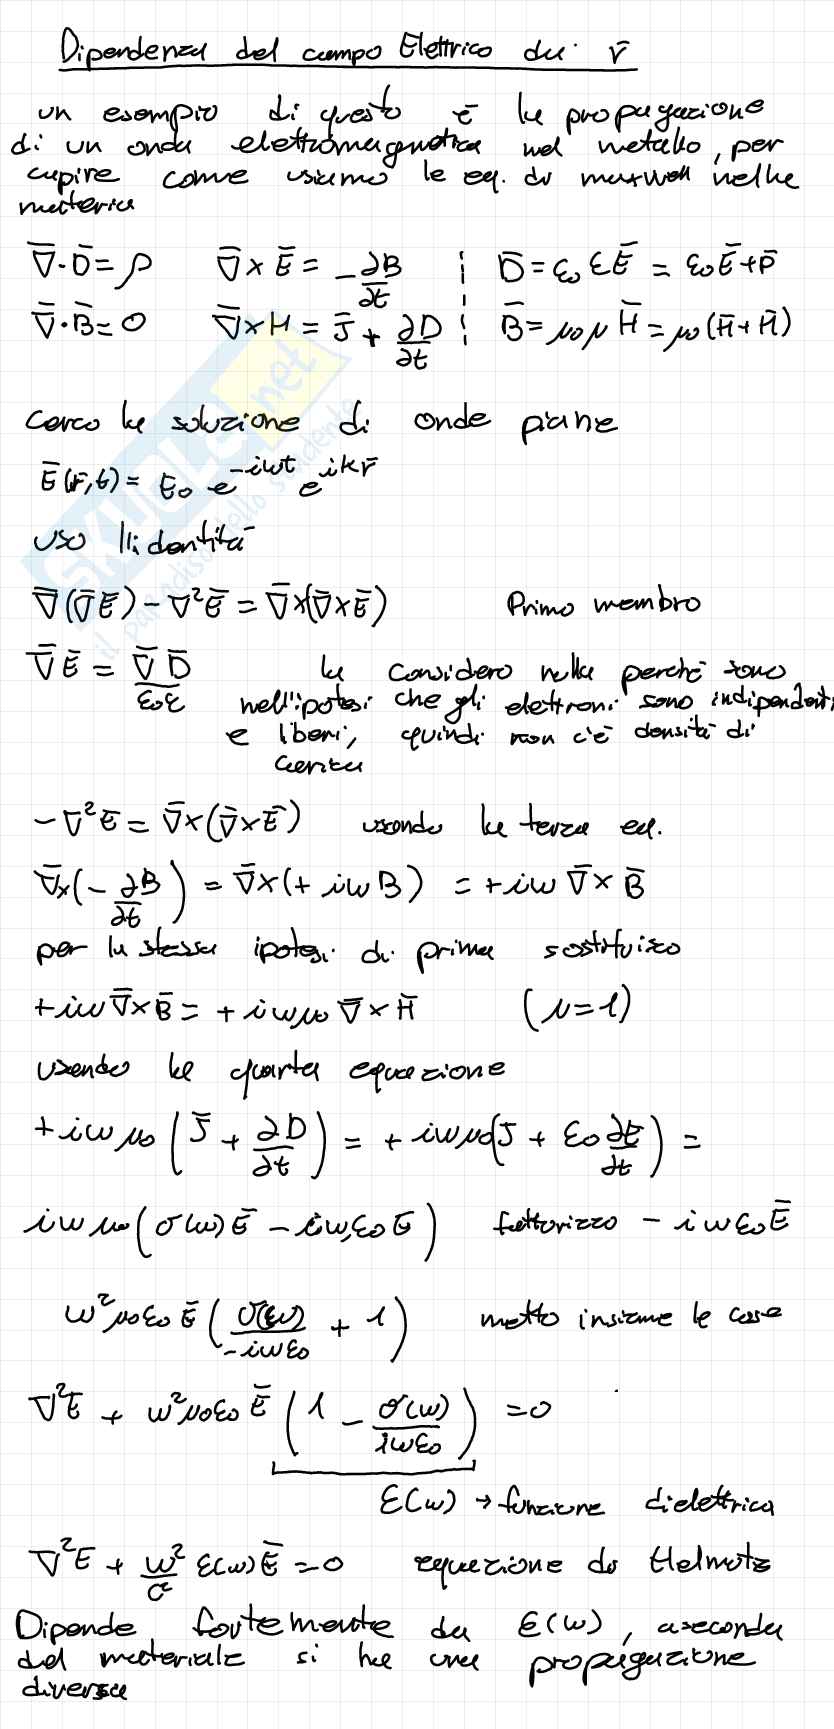 Dipendenza del campo Elettrico da r̄
un esempio di questo è la propagazione
di un onda elettromagnetica nel metallo, per
capire come usiamo le eq. di maxwell nella
materia
∇̄·D̄ = ρ   ∇̄×Ē = -∂B/∂t   ¦   D̄ = ε₀εĒ = ε₀Ē + P̄
∇̄·B̄ = 0   ∇̄×H = J̄ + ∂D/∂t   ¦   B̄ = μ₀μH̄ = μ₀(H̄+H̄)
Cerco la soluzione di onde piane
Ē(r̄,t) = E₀ e^{-iωt} e^{ikr̄}
uso l'identità
∇̄(∇̄Ē) - ∇²Ē = ∇̄×(∇̄×Ē)   Primo membro
∇̄Ē = ∇̄D̄/ε₀ε   la considero nulla perchè sono
nell'ipotesi che gli elettroni sono indipendenti
e liberi, quindi non c'è densità di
carica
-∇²Ē = ∇̄×(∇̄×Ē)   usando la terza eq.
∇̄×(-∂B/∂t) = ∇̄×(+iωB) = +iω∇̄×B̄
per la stessa ipotesi di prima sostituisco
+iω∇̄×B̄ = +iωμ₀∇̄×H̄   (μ=1)
usando la quarta equazione
+iωμ₀(J̄ + ∂D/∂t) = +iωμ₀(J + ε₀∂E/∂t) =
iωμ₀(σ(ω)Ē - iωε₀Ē)   fattorizzo -iωε₀Ē
ω²μ₀ε₀Ē(σ(ω)/-iωε₀ + 1)   metto insieme le cose
∇²Ē + ω²μ₀ε₀Ē(1 - σ(ω)/iωε₀) = 0
ε(ω) → funzione dielettrica
∇²E + ω²/c² ε(ω)Ē = 0   equazione di Helmotz
Dipende fortemente da ε(ω), aseconda
del materiale si ha una propagazione
diversa
SKUOLA.net
il paradiso dello studente